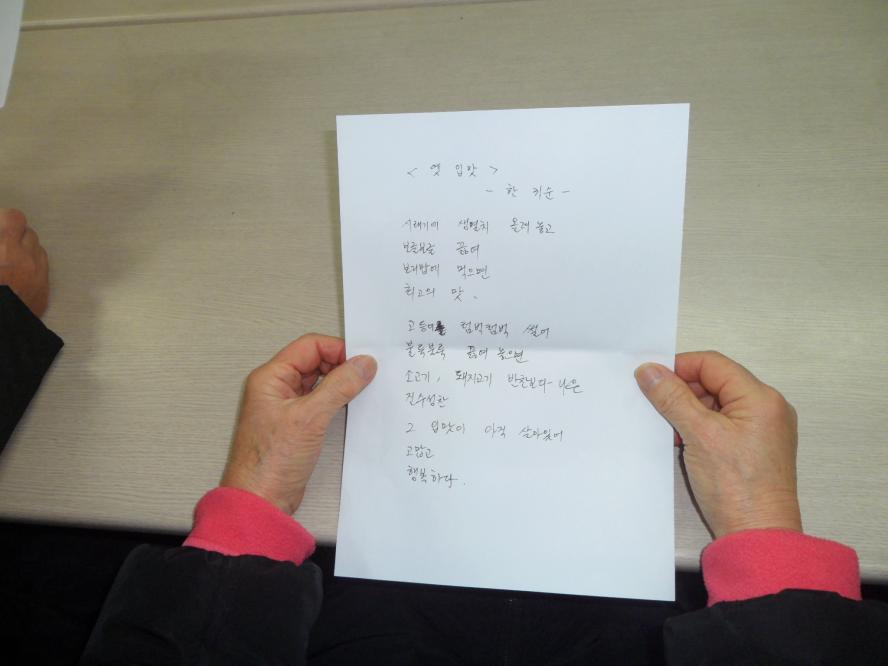 < 옛 입맛 >
- 한 귀순 -
시래기에 생멸치 올려 놓고
보글보글 끓여
보리밥에 먹으면
최고의 맛.
고등어를 텀벅텀벅 썰어
불룩불룩 끓여 놓으면
소고기, 돼지고기 반찬보다 나은
진수성찬
그 입맛이 아직 살아있어
고맙고
행복하다.